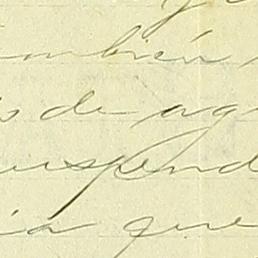 ambién
s de ag
uspend
ia que